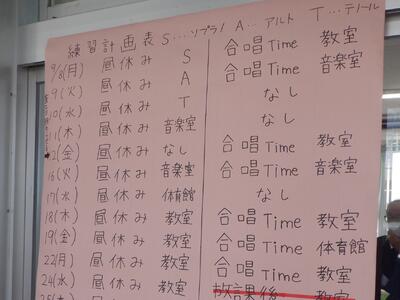 練習計画表 S…ソプラノ A…アルト T…テノール
9/8(月) 昼休み S 合唱Time 教室
9(火) 昼休み A 合唱Time 音楽室
10(水) 昼休み T なし
11(木) 昼休み 音楽室 なし
12(金) 昼休み なし 合唱Time 教室
16(火) 昼休み 音楽室 合唱Time 音楽室
17(水) 昼休み 体育館 なし
18(木) 昼休み 教室 合唱Time 教室
19(金) 昼休み 教室 合唱Time 体育館
22(月) 昼休み 教室 合唱Time 教室
24(水) 昼休み 教室 放課後 教室